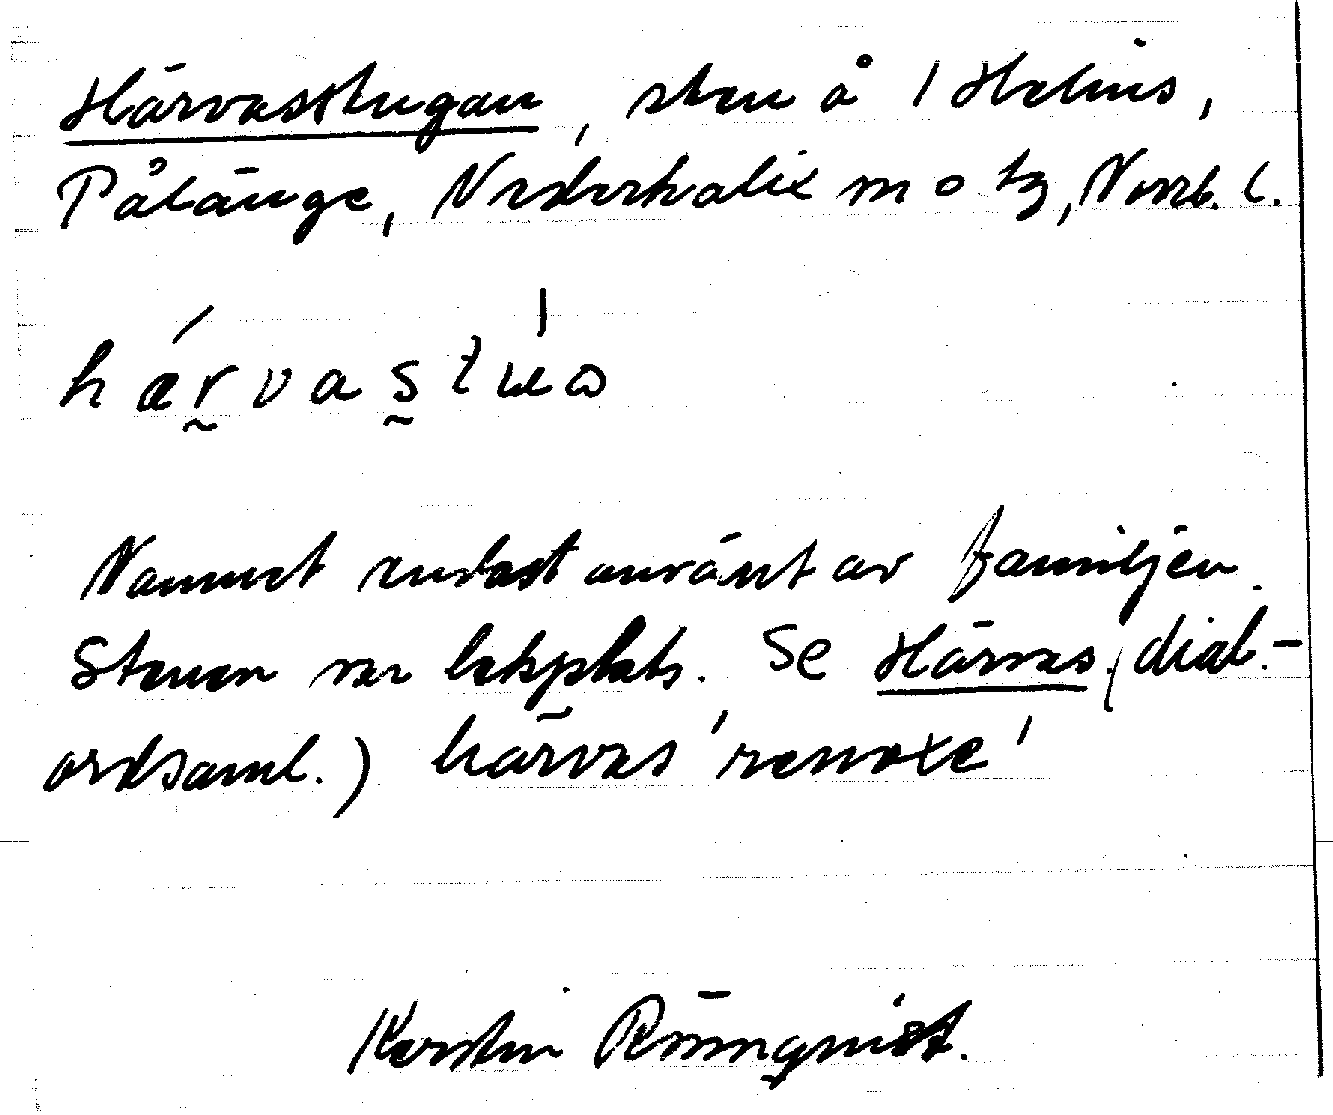 Härvasstugan, sten å 1 Holms,
Pålänge, Nederkalix m o tg, Norrb. l.
Namnet endast använt av familjen.
Stenen var lekplats. Se Härvas (dial.-
ordsaml.) härvas 'renoxe'
Kerstin Rönnqvist.